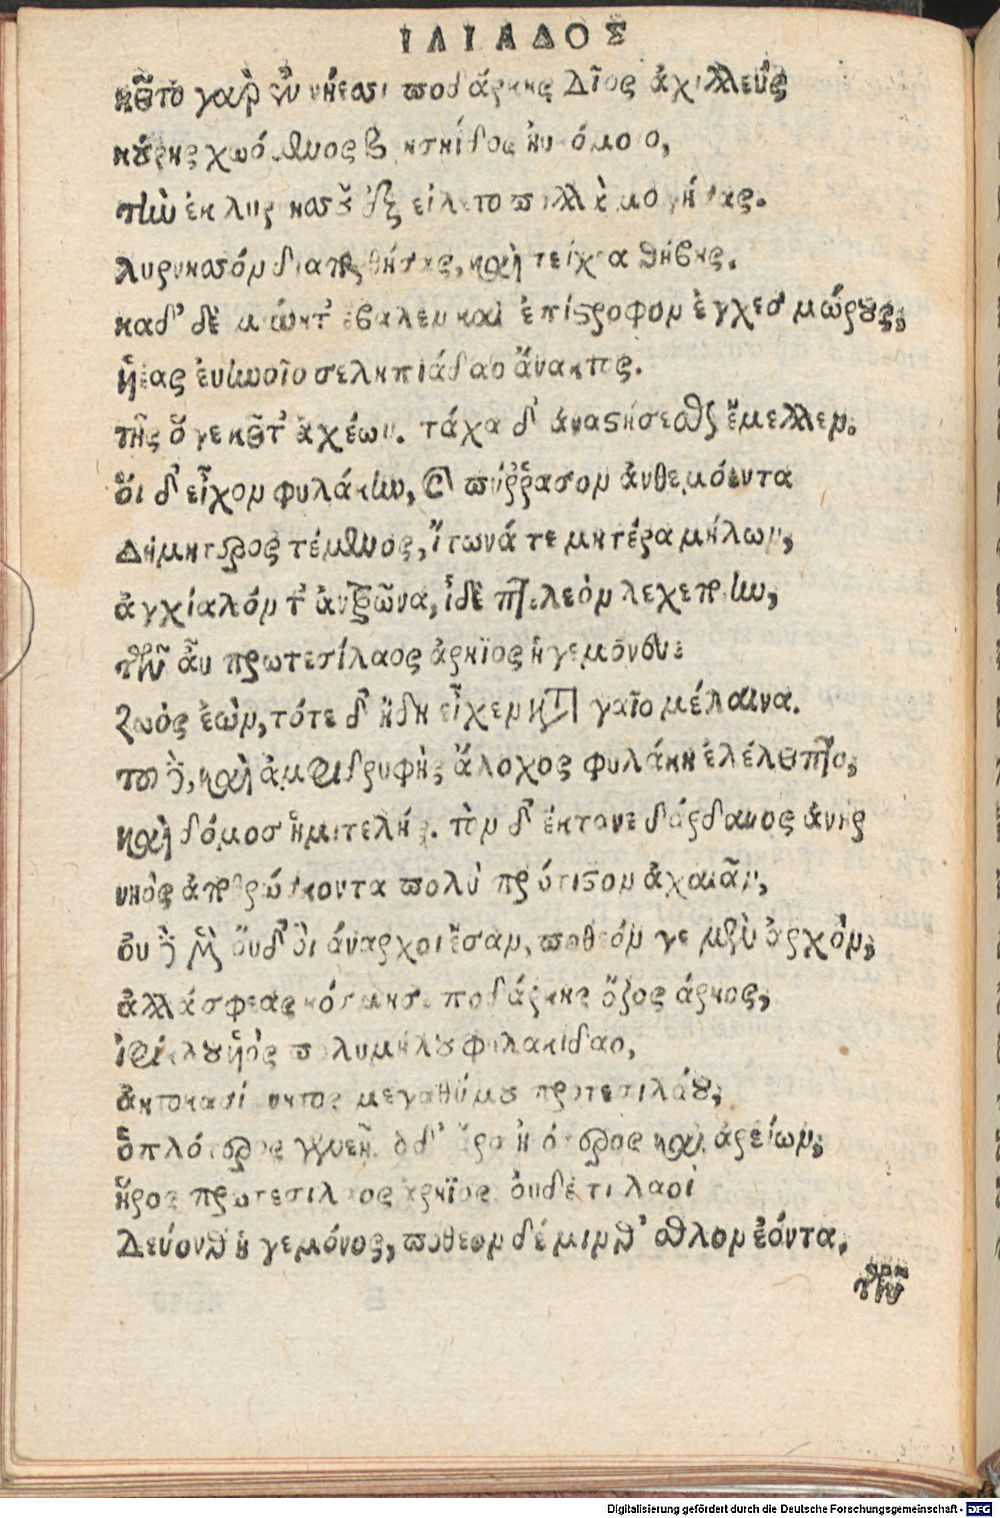 ΙΛΙΑΔΟΣ
κεῖτο γὰρ ἐν νήεσσι ποδάρκης Δῖος ἀχιλλεύς
κούρης χωόμενος βρισηίδος ἠυκόμοιο,
τὴν ἐκ λυρνησοῦ ἐξείλετο πολλὰ μογήσας.
λυρνησὸν διαπορθήσας, καὶ τείχεα θήβης.
καδ' δὲ μύνητ' ἔβαλεν καὶ ἐπίστροφον ἐγχεσιμώρους,
ὑῆας ἐυηνοῖο σεληπιάδαο ἄνακτος.
τῆς ὅγε κεῖτ' ἀχέων. τάχα δ' ἀναστήσεσθαι ἔμελλεν.
ὅι δ' εἶχον φυλάκην, καὶ πύῤῥασον ἀνθεμόεντα
Δήμητρος τέμενος, ἴτωνά τε μητέρα μήλων,
ἀγχίαλόν τ' ἀντρῶνα, ἰδὲ πτελεὸν λεχεποίην,
τῶν αὖ πρωτεσίλαος ἀρήϊος ἡγεμόνευε
ζωὸς ἐὼν, τότε δ' ἤδη εἶχεν κατὰ γαῖα μέλαινα.
τοῦ δὲ, καὶ ἀμφιδρυφὴς ἄλοχος φυλάκη ἐλέλειπτο,
καὶ δόμοσ ἡμιτελής. τὸν δ' ἔκτανε δάρδανος ἀνὴρ
νηὸς ἀποθρώσκοντα πολὺ πρώτιστον ἀχαιῶν,
ὀυ δὲ μὲν ὄυδ' ὃι ἄναρχοι ἔσαν, πόθεόν γε μὲν ἀρχόν,
ἀλλάσφεας κόσμησε ποδάρκης ὄζος ἄρηος,
ἰφίκλου ὑὸς πολυμήλου φυλακίδαο,
ἀυτοκασίγνητος μεγαθύμου πρωτεσιλάου,
ὁπλότερος γενεῇ. ὁδ' ἄρα πρότερος καὶ ἀρείων,
ἥρος πρωτεσίλαος ἀρήϊος. ὀυδέ τι λαοὶ
Δεύονθ' ἡγεμόνος, πόθεον δέ μιν ἐσθλὸν ἐόντα.
τῶν
Digitalisierung gefördert durch die Deutsche Forschungsgemeinschaft - DFG